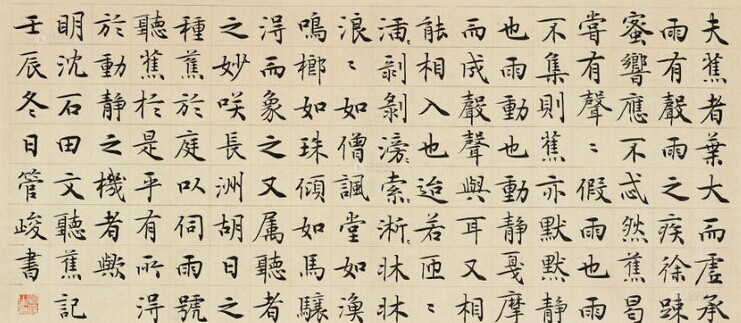 夫蕉者葉大而虛承
雨有聲雨之疾徐踈
蜜響應不忒然蕉曷
嘗有聲〻假雨也雨
不集則蕉亦默默靜
也雨動也動靜戛摩
而成聲聲與耳又相
能相入也迨若匝〻
剝剝滂〻索〻淅〻牀牀
浪〻如僧諷堂如漁
鳴榔如珠傾如馬驤
淂而象之又属聽者
之妙咲長洲胡日之
種蕉於庭以伺雨號
聽蕉於是乎有所淂
於動靜之機者歟
明沈石田文聽蕉記
壬辰冬日管峻書